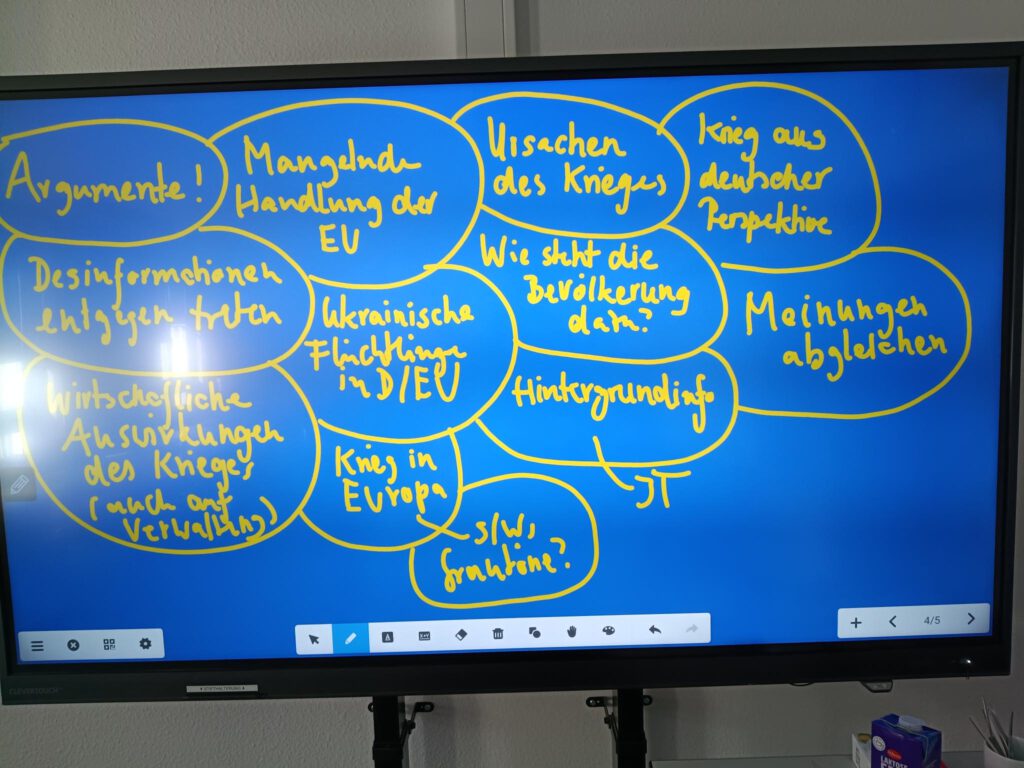 Argumente!
Mangelnde
Handlung der
EU
Ursachen
des Krieges
Krieg aus
deutscher
Perspektive
Desinformationen
entgegen treten
Ukrainische
Flüchtlinge
in D/EU
Wie steht die
Bevölkerung
dazu?
Meinungen
abgleichen
Wirtschaftliche
Auswirkungen
des Krieges
(auch auf
Verwaltung)
Krieg in
Europa
Hintergrundinfo
JT
S/W,
Grautöne?
4/5
CLEVERTOUCH
STIFTHALTERUNG
LAKTOSE